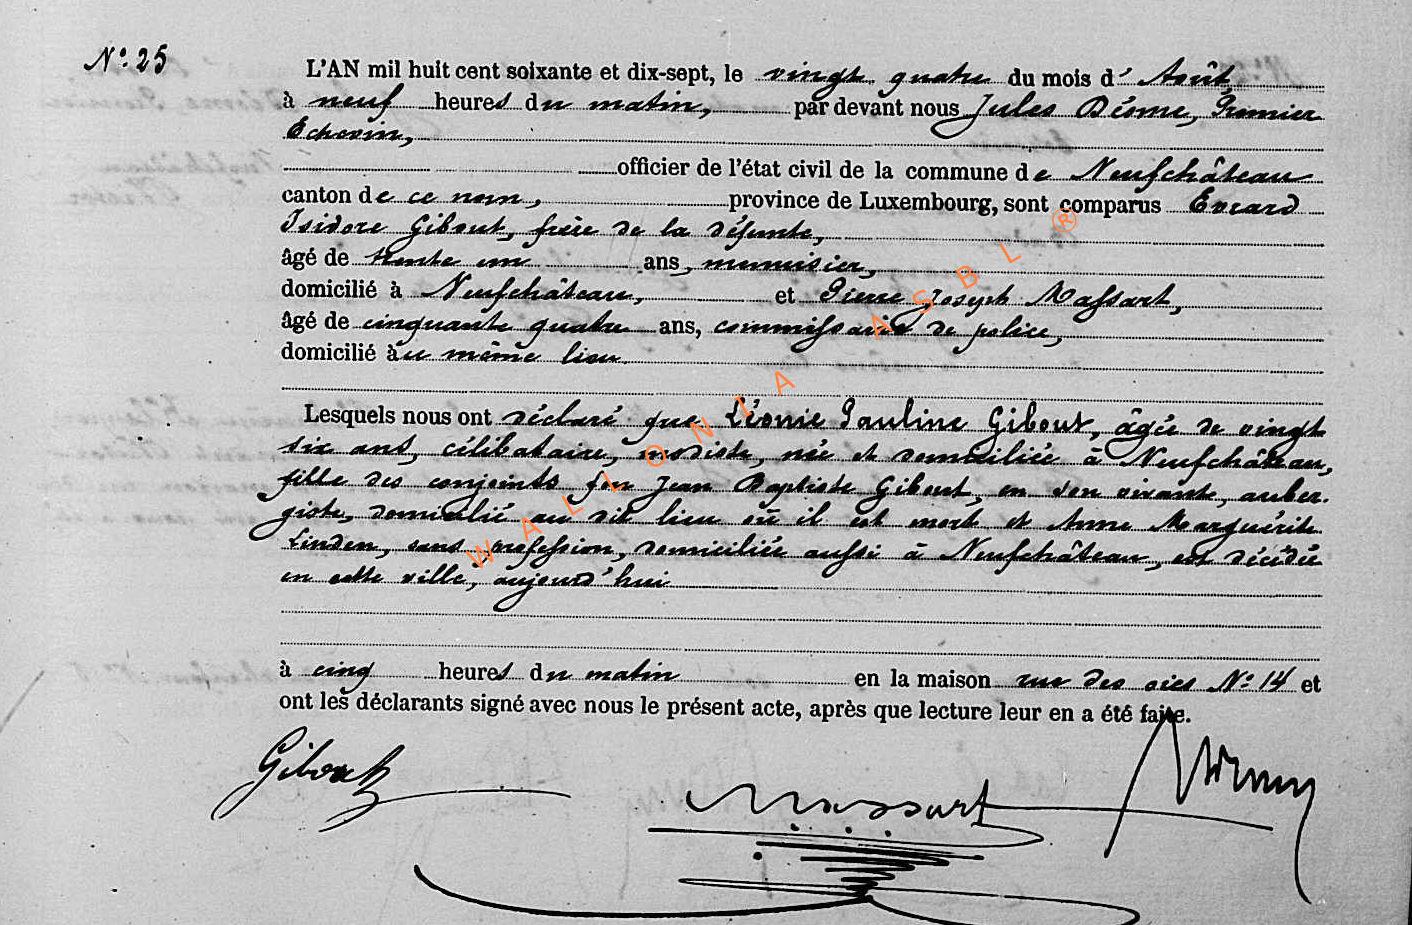 N° 25
L'AN mil huit cent soixante et dix-sept, le vingt quatre du mois d' Août
à neuf heures du matin, par devant nous Jules Déome, Premier
Echevin,
officier de l'état civil de la commune de Neufchâteau
canton de ce nom, province de Luxembourg, sont comparus Evrard
Isidore Gibout, frère de la défunte,
âgé de trente un ans, menuisier,
domicilié à Neufchâteau, et Pierre Joseph Massart,
âgé de cinquante quatre ans, commissaire de police,
domicilié au même lieu
Lesquels nous ont déclaré que Léonie Pauline Gibout, âgée de vingt
six ans, célibataire, modiste, née et domiciliée à Neufchâteau,
fille des conjoints feu Jean Baptiste Gibout, en son vivante, auber-
giste, domicilié au dit lieu où il est mort et Anne Marguérite
Linden, sans profession, domiciliée aussi à Neufchâteau, est décédée
en cette ville, aujourd'hui
à cinq heures du matin en la maison rue des oies N° 14 et
ont les déclarants signé avec nous le présent acte, après que lecture leur en a été faite.
Gibout
Massart
WALLONIA ASBL ®